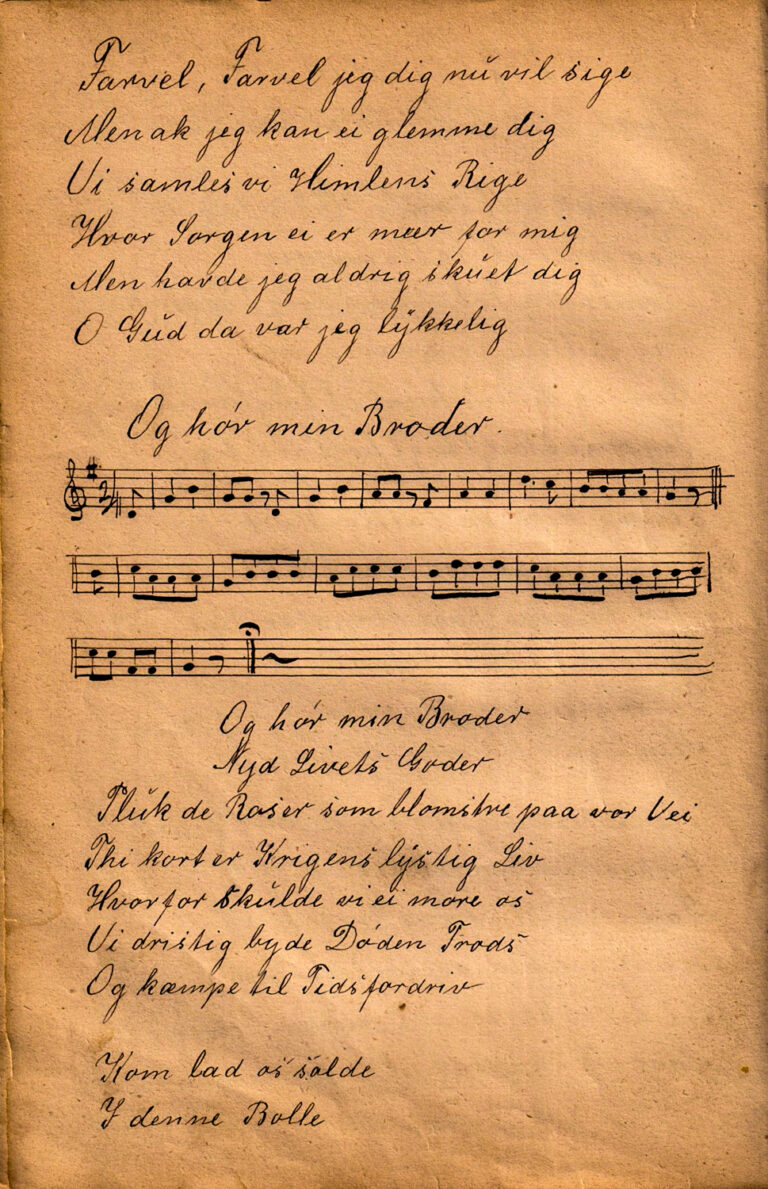 Farvel, Farvel jeg dig nu vil sige
Men ak jeg kan ei glemme dig
Vi samles vi Himlens Rige
Hvor Sorgen ei er mær for mig
Men havde jeg aldrig skuet dig
O Gud da var jeg lykkelig
Og hør min Broder.
Og hør min Broder
Nyd Livets Goder
Pluk de Roser som blomstre paa vor Vei
Thi kort er Krigens lystig Liv
Hvorfor skulde vi ei more os
Vi dristig byde Døden Trods
Og kæmpe til Tidsfordriv
Kom lad os solde
I denne Bolle